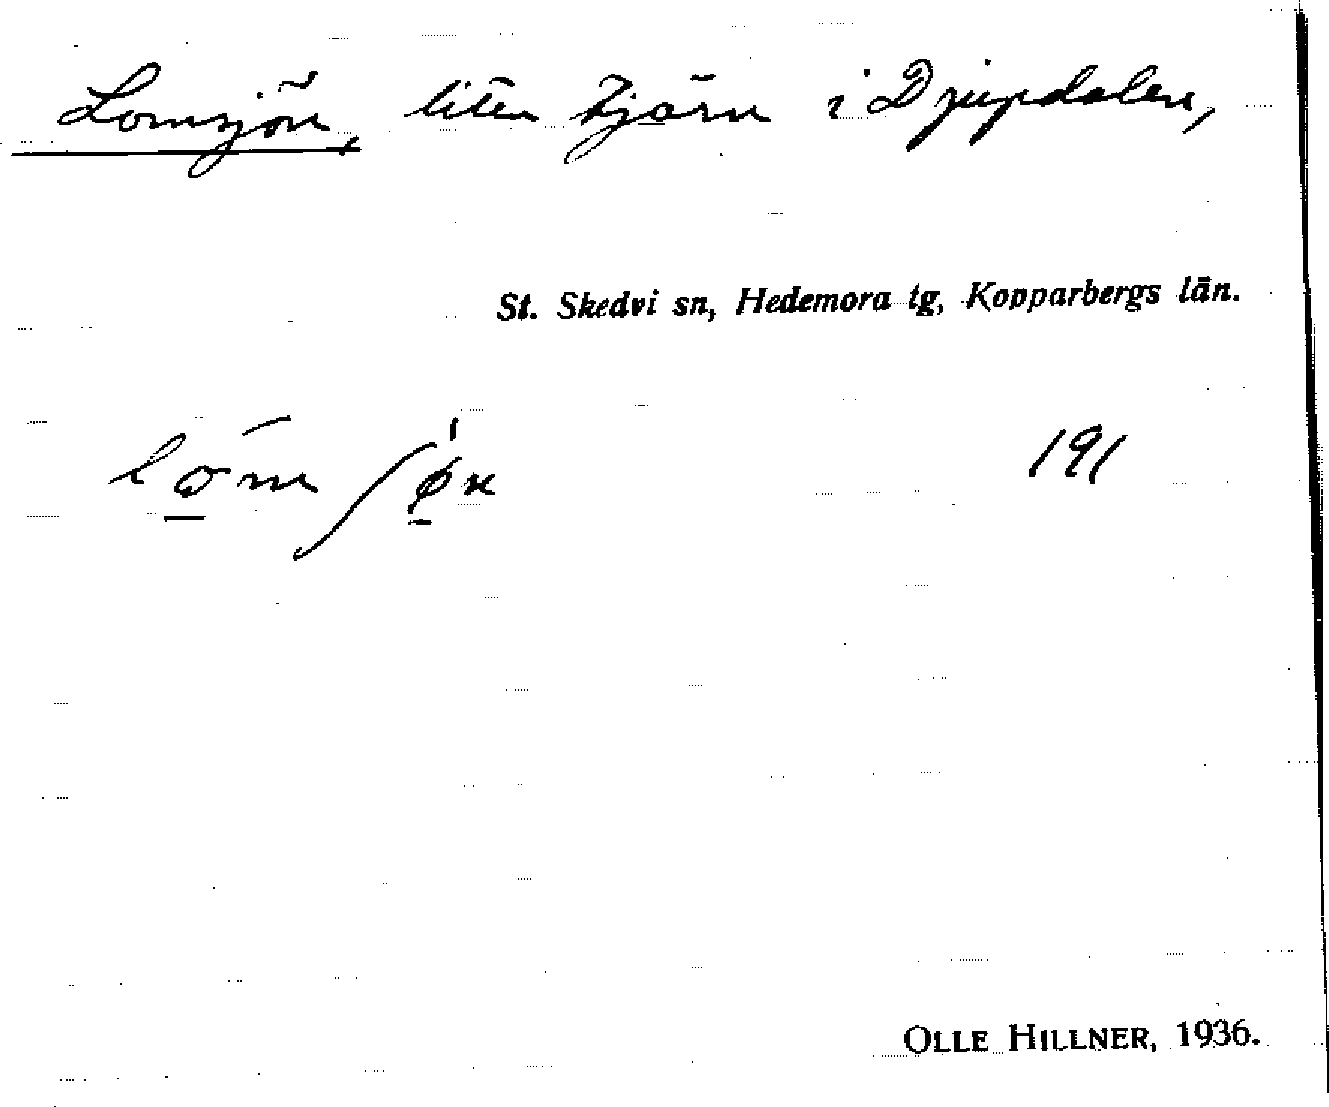 Lomsjön, liten tjärn i Djupdalen,
St. Skedvi sn, Hedemora tg, Kopparbergs län.
191
OLLE HILLNER, 1936.